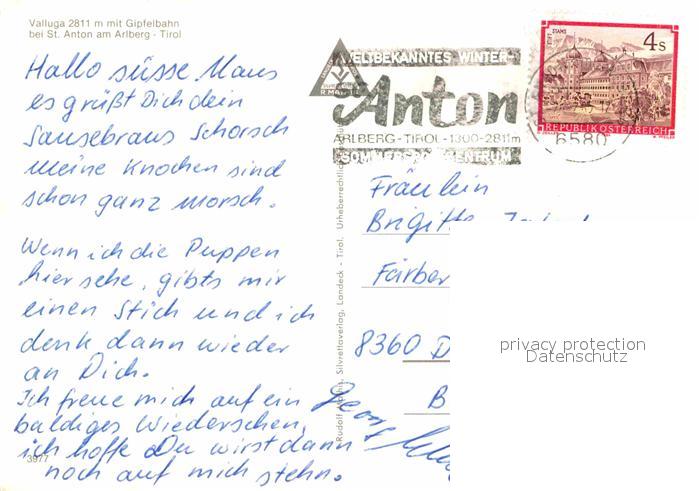 Valluga 2811 m mit Gipfelbahn
bei St. Anton am Arlberg - Tirol
Hallo süsse Maus
es grüßt Dich dein
Sausebraus Schorsch
meine Knochen sind
schon ganz morsch.
Wenn ich die Puppen
hier sehe, gibts mir
einen Stich und ich
denk dann wieder
an Dich.
Ich freue mich auf ein
baldiges Wiedersehen,
ich hoffe Du wirst dann
noch auf mich stehn.
3977
Georg
Rudolf Mathis, Silvrettaverlag, Landeck - Tirol. Urheberrechtlich
WELTBEKANNTES WINTER-
Anton
ARLBERG-TIROL-1300-2811m
SOMMERSPORTZENTRUM
6580
STIFT STAMS
4 S
REPUBLIK ÖSTERREICH
Fräulein
Färber
8360 D
B
privacy protection
Datenschutz